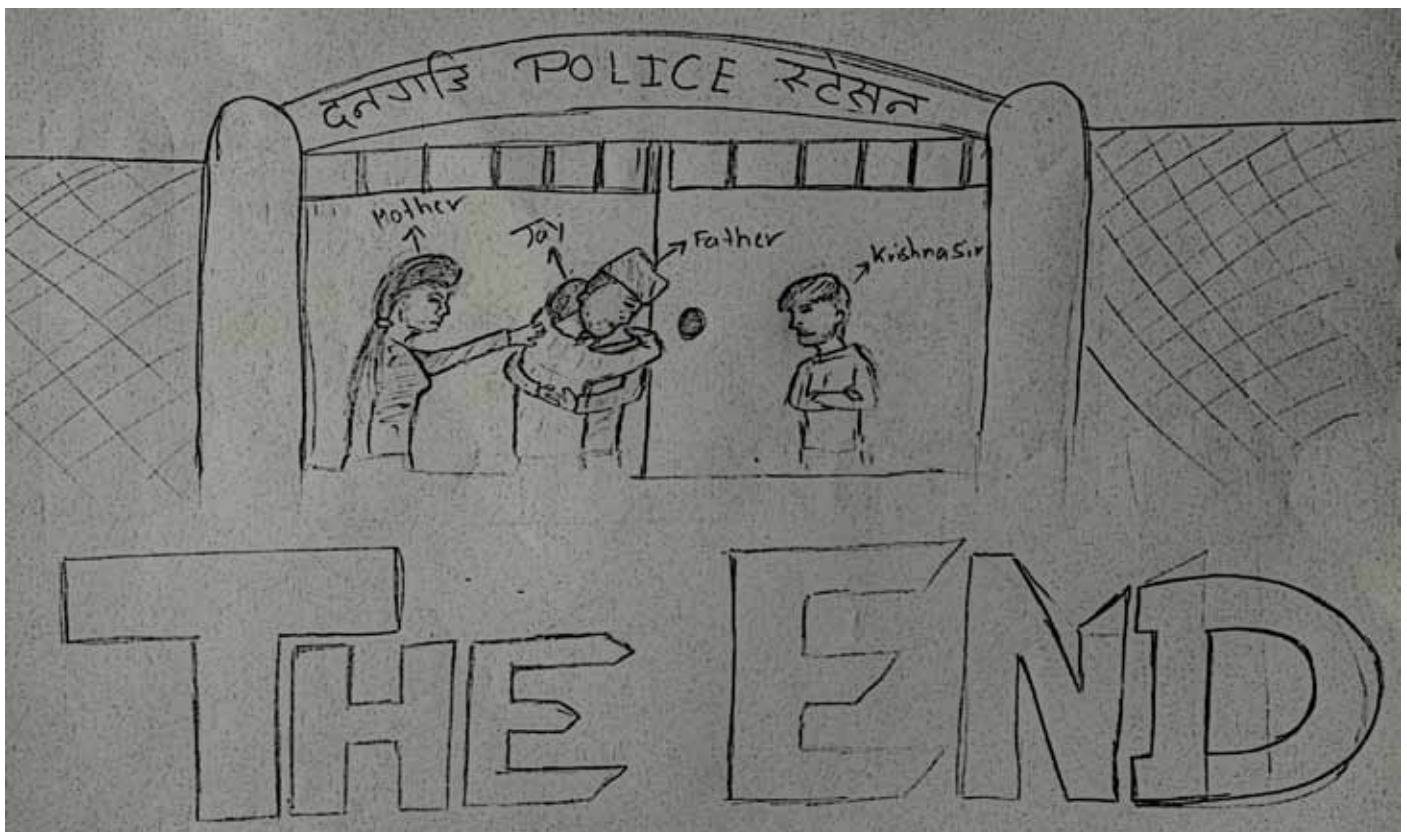 दनगडि POLICE स्टेसन
Mother
Jay
Father
Krishna Sir
THE END